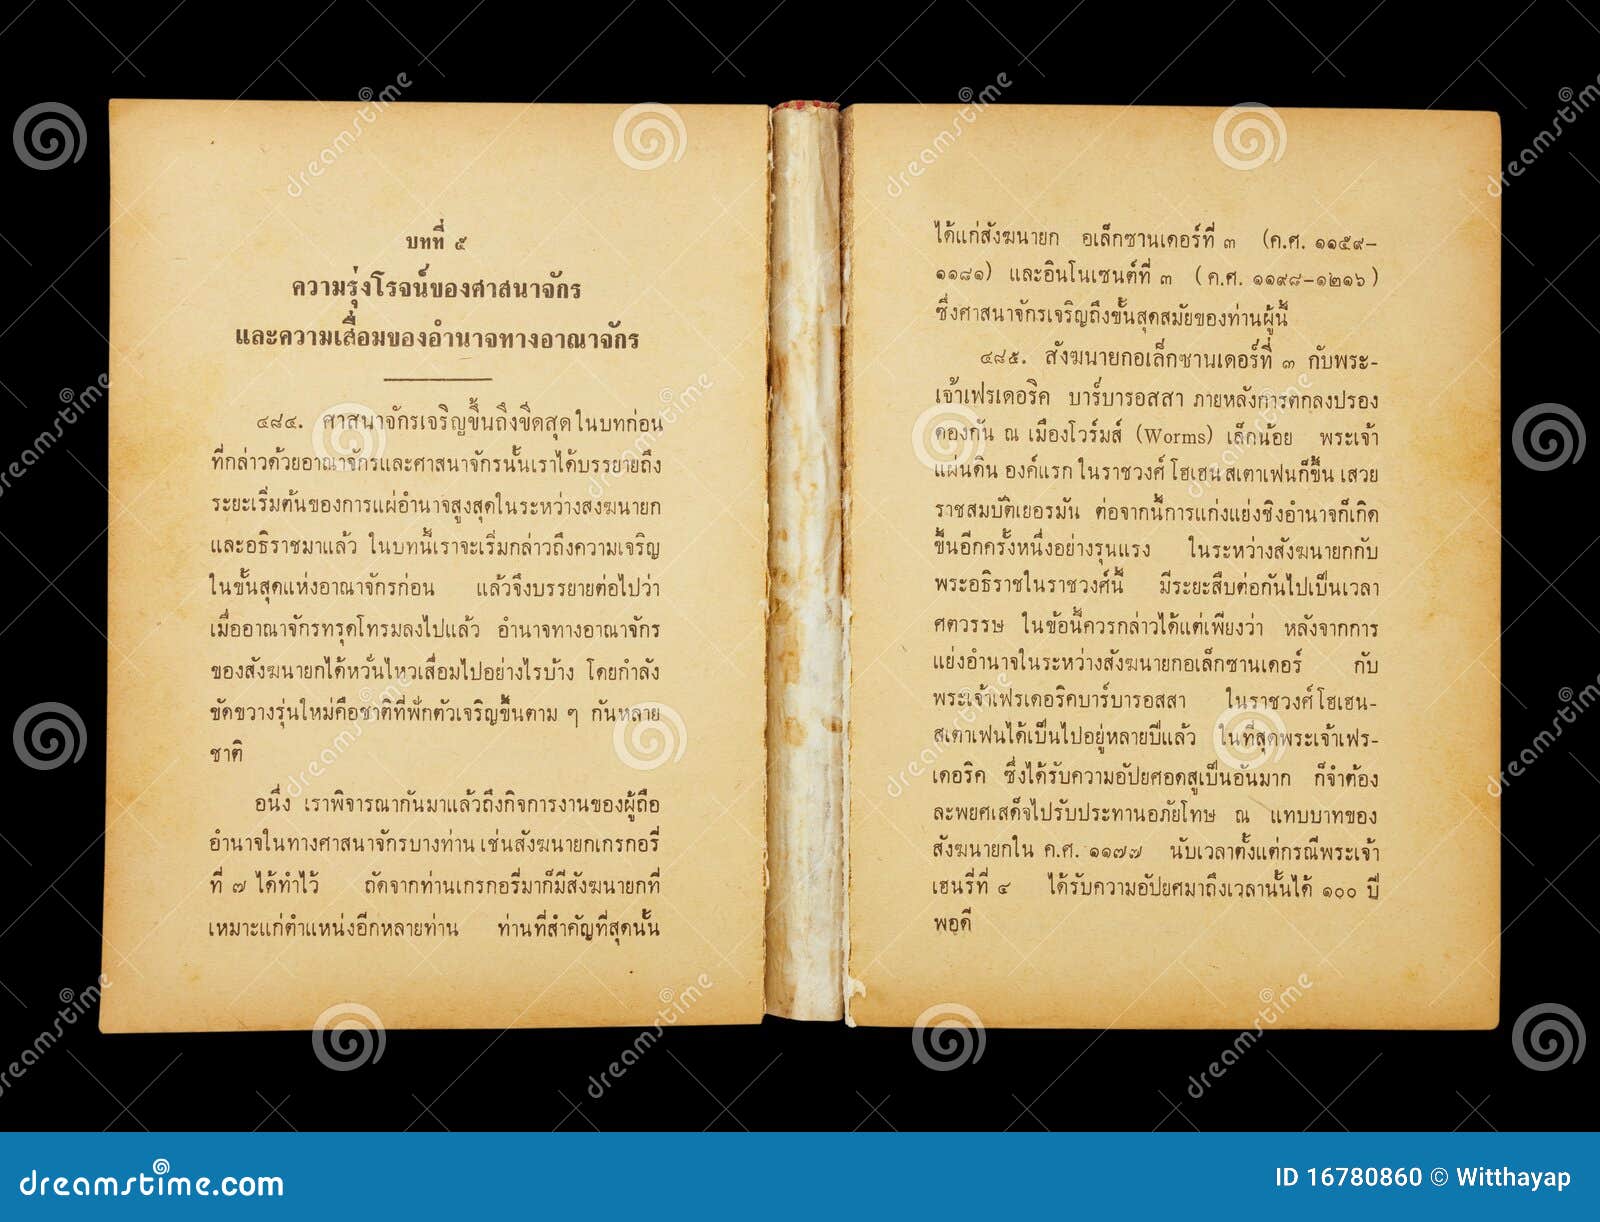 บทที่ ๕
ความรุ่งโรจน์ของศาสนาจักร
และความเสื่อมของอำนาจทางอาณาจักร
๔๘๔. ศาสนาจักรเจริญขึ้นถึงขีดสุด ในบทก่อน
ที่กล่าวด้วยอาณาจักรและศาสนาจักรนั้นเราได้บรรยายถึง
ระยะเริ่มต้นของการแผ่อำนาจสูงสุดในระหว่างสงฆนายก
และอธิราชมาแล้ว ในบทนี้เราจะเริ่มกล่าวถึงความเจริญ
ในขั้นสุดแห่งอาณาจักรก่อน แล้วจึงบรรยายต่อไปว่า
เมื่ออาณาจักรทรุดโทรมลงไปแล้ว อำนาจทางอาณาจักร
ของสังฆนายกได้หวั่นไหวเสื่อมไปอย่างไรบ้าง โดยกำลัง
ขัดขวางรุ่นใหม่คือชาติที่พักตัวเจริญขึ้นตาม ๆ กันหลาย
ชาติ
อนึ่ง เราพิจารณากันมาแล้วถึงกิจการงานของผู้ถือ
อำนาจในทางศาสนาจักรบางท่าน เช่นสังฆนายกเกรกอรี่
ที่ ๗ ได้ทำไว้ ถัดจากท่านเกรกอรี่มาก็มีสังฆนายกที่
เหมาะแก่ตำแหน่งอีกหลายท่าน ท่านที่สำคัญที่สุดนั้น
ได้แก่สังฆนายก อเล็กซานเดอร์ที่ ๓ (ค.ศ. ๑๑๕๙-
๑๑๘๑) และอินโนเซนต์ที่ ๓ (ค.ศ. ๑๑๙๘-๑๒๑๖)
ซึ่งศาสนาจักรเจริญถึงขั้นสุดสมัยของท่านผู้นี้
๔๘๕. สังฆนายกอเล็กซานเดอร์ที่ ๓ กับพระ-
เจ้าเฟรเดอริค บาร์บารอสสา ภายหลังการตกลงปรอง
ดองกัน ณ เมืองโวร์มส์ (Worms) เล็กน้อย พระเจ้า
แผ่นดิน องค์แรก ในราชวงศ์ โฮเฮน สเตาเฟนก็ขึ้น เสวย
ราชสมบัติเยอรมัน ต่อจากนี้การแก่งแย่งชิงอำนาจก็เกิด
ขึ้นอีกครั้งหนึ่งอย่างรุนแรง ในระหว่างสังฆนายกกับ
พระอธิราชในราชวงศ์นี้ มีระยะสืบต่อกันไปเป็นเวลา
ศตวรรษ ในข้อนี้ควรกล่าวได้แต่เพียงว่า หลังจากการ
แย่งอำนาจในระหว่างสังฆนายกอเล็กซานเดอร์ กับ
พระเจ้าเฟรเดอริคบาร์บารอสสา ในราชวงศ์โฮเฮน-
สเตาเฟนได้เป็นไปอยู่หลายปีแล้ว ในที่สุดพระเจ้าเฟร-
เดอริค ซึ่งได้รับความอัปยศอดสูเป็นอันมาก ก็จำต้อง
ละพยศเสด็จไปรับประทานอภัยโทษ ณ แทบบาทของ
สังฆนายกใน ค.ศ. ๑๑๗๗ นับเวลาตั้งแต่กรณีพระเจ้า
เฮนรี่ที่ ๔ ได้รับความอัปยศมาถึงเวลานั้นได้ ๑๐๐ ปี
พอดี
dreamstime.com
ID 16780860 © Witthayap